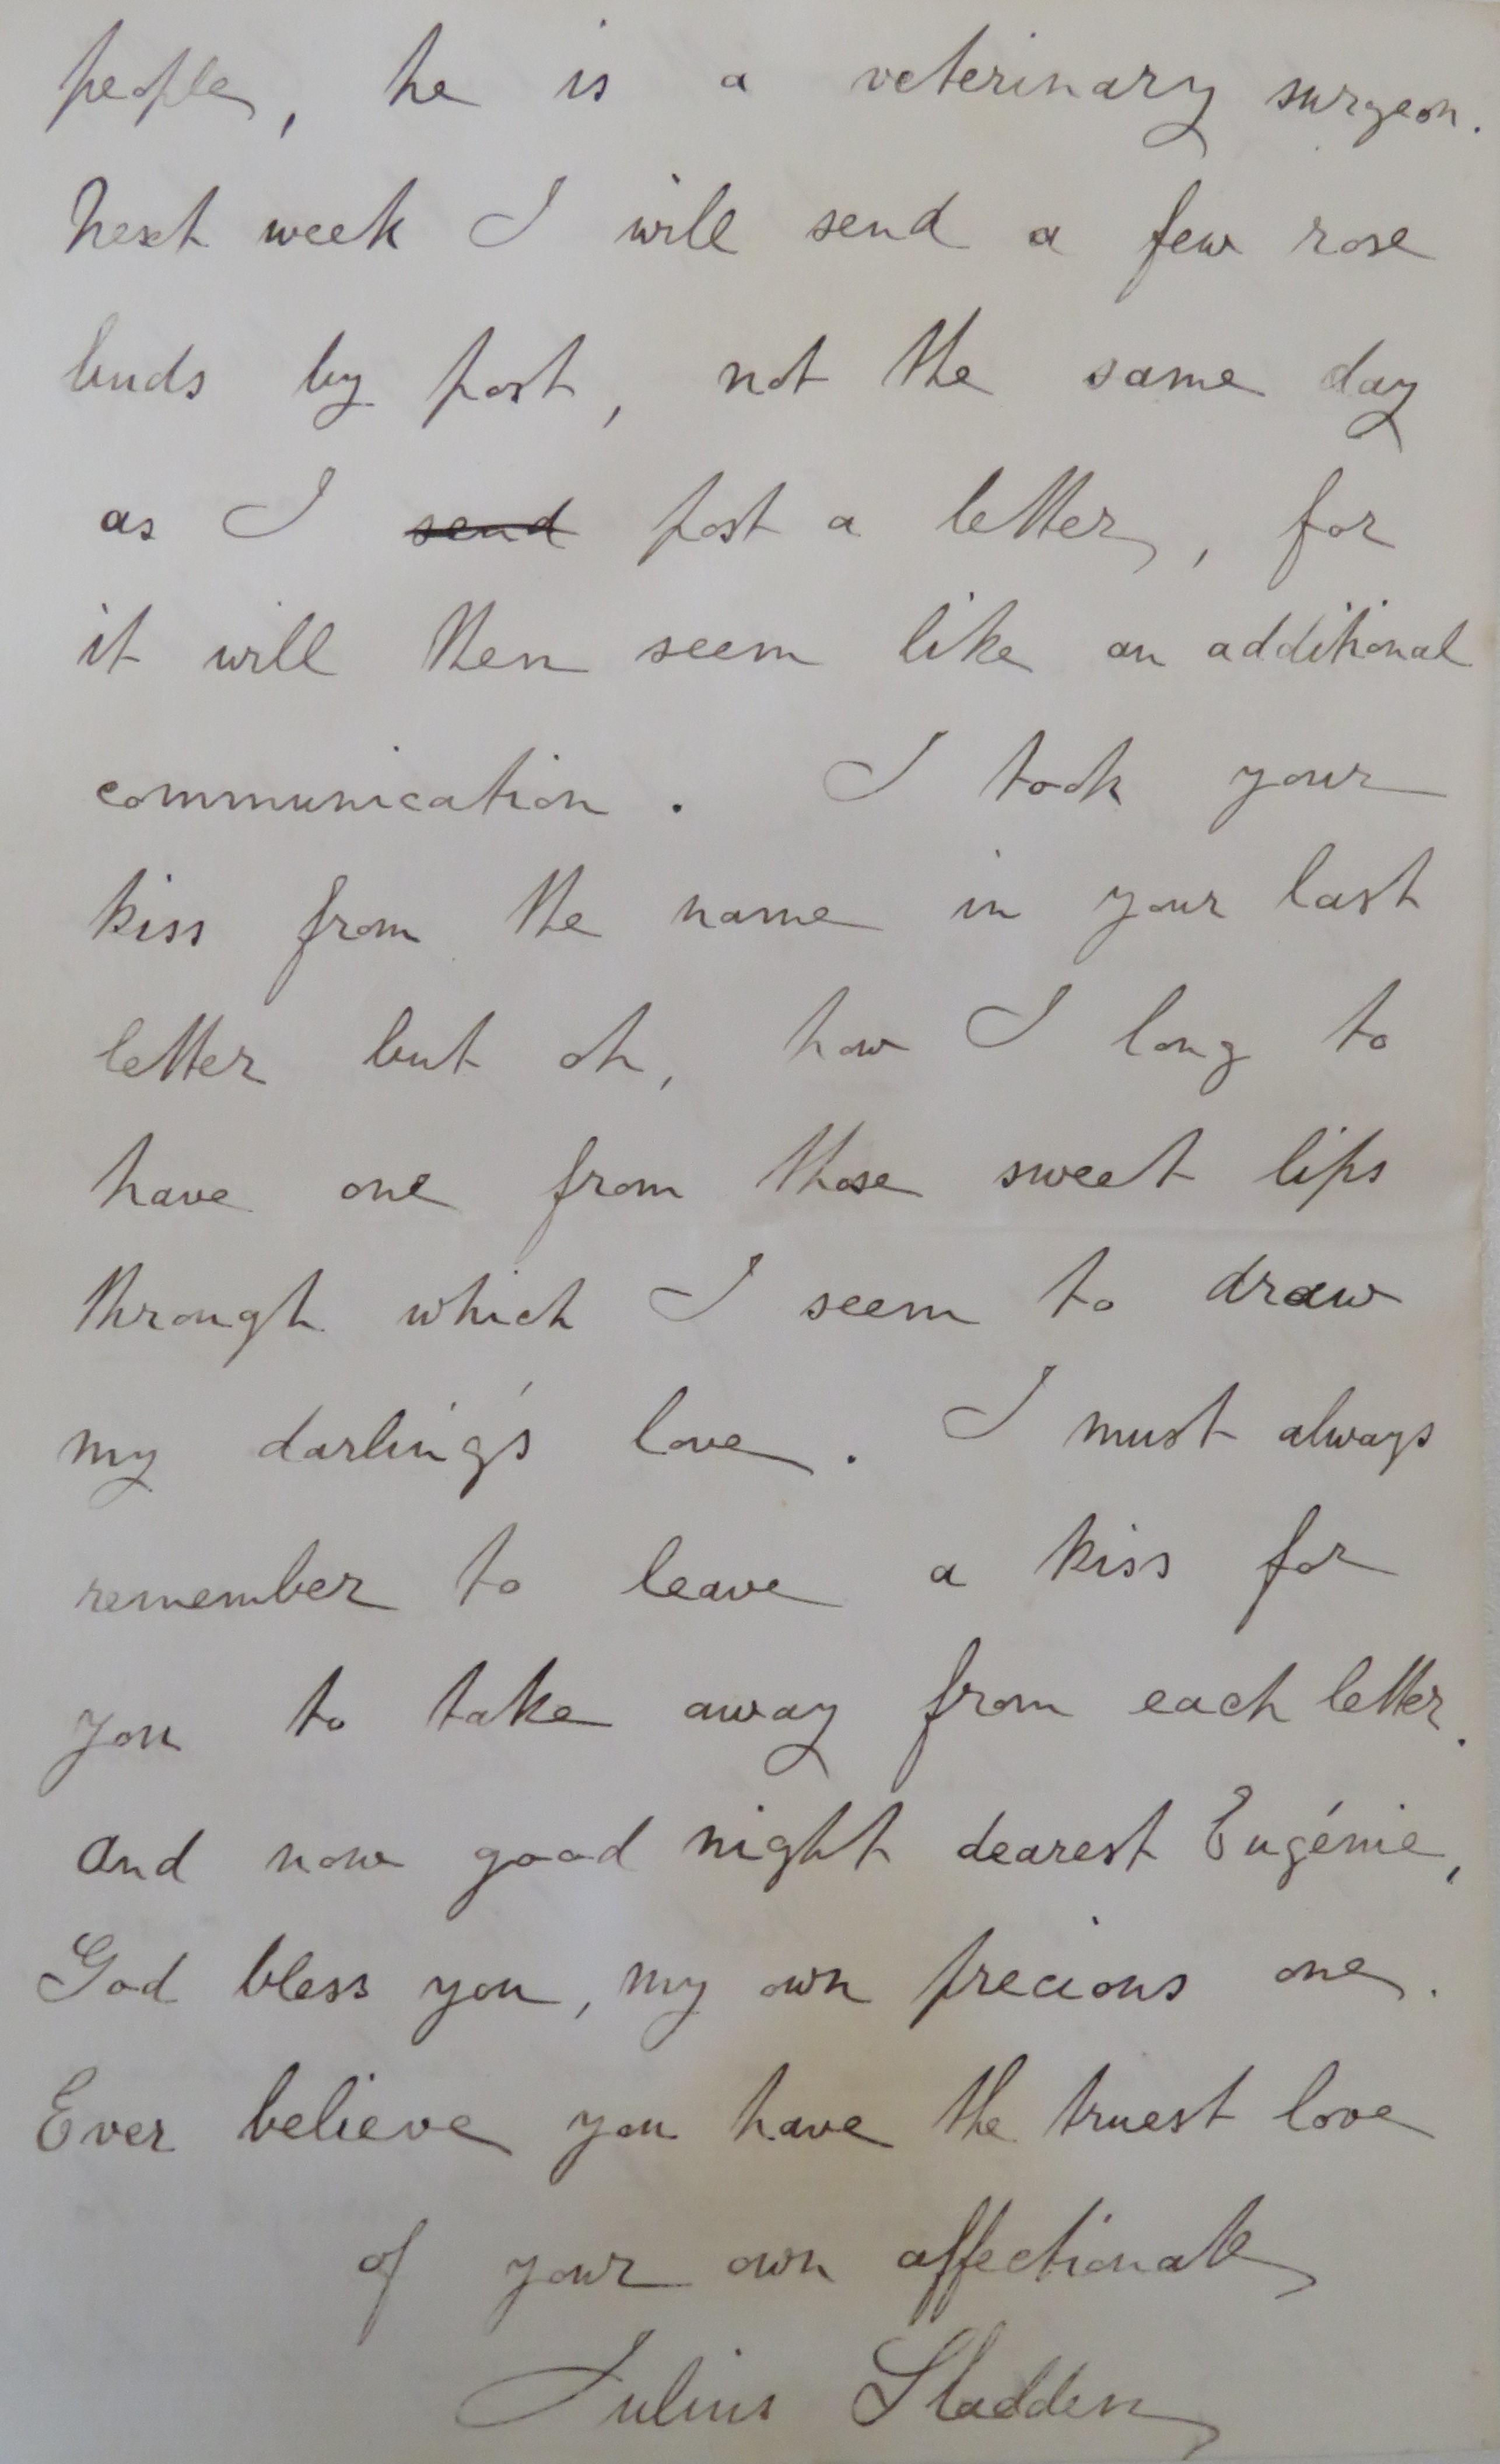 people, he is a veterinary surgeon.
Next week I will send a few rose
buds by post, not the same day
as I send post a letter, for
it will then seem like an additional
communication. I took your
kiss from the name in your last
letter but oh, how I long to
have one from those sweet lips
through which I seem to draw
my darling's love. I must always
remember to leave a kiss for
you to take away from each letter.
And now good night dearest Eugénie,
God bless you, my own precious one.
Ever believe you have the truest love
of your own affectionate
Julius Sladden